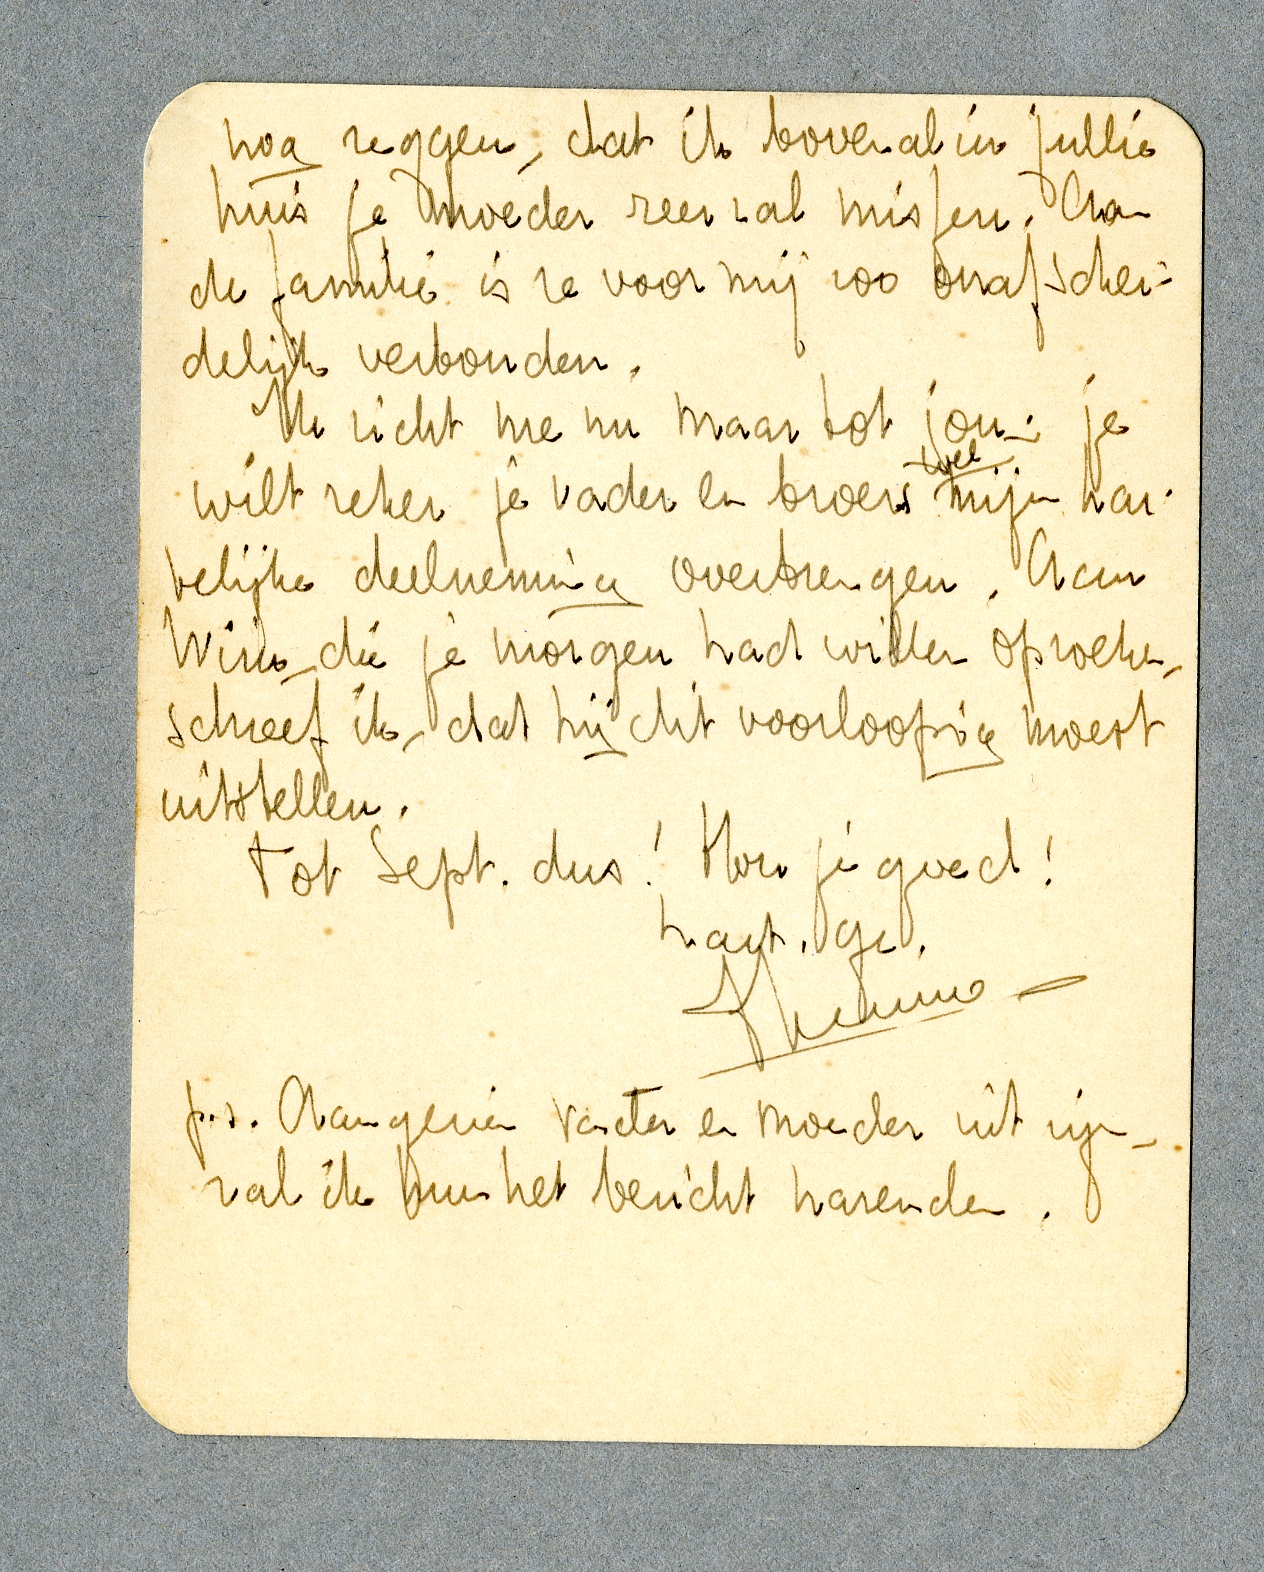 nog zeggen, dat ik bovenal in jullie
huis je moeder zeer zal missen. Aan
de familie is ze voor mij zoo onafschei-
delijk verbonden.
Ik richt me nu maar tot jou: je
wilt zeker je vader en broers wel mijn har-
telijke deelneming overbrengen. Aan
Wim, die je morgen had willen opzoeken,
schreef ik, dat hij dit voorloopig moest
uitstellen.
Tot Sept. dus! Hou je goed!
hart. gr.
p.s. Aangezien vader en moeder uit zijn,
zal ik hun het bericht nazenden.